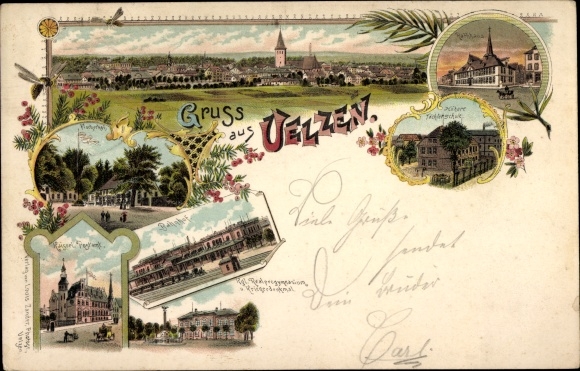 Gruss
aus
UELZEN.
Rathaus
Höhere
Töchterschule
Bahnhof
Kgl. Realprogymnasium
u. Kriegerdenkmal
Viele Grüße
sendet
Dein Bruder
Carl.